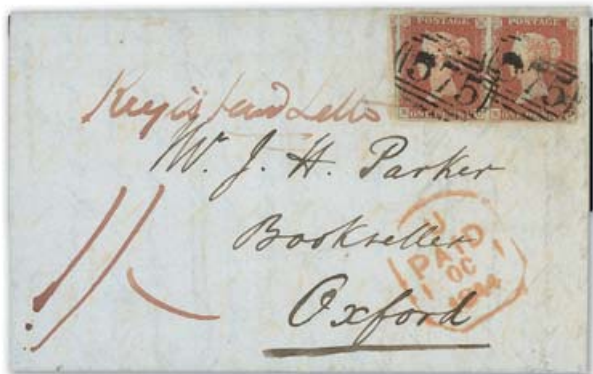 POSTAGE POSTAGE
575 575
ONE PENNY
Registered Letter
Mr. J. H. Parker
Bookseller
Oxford
1/-
PAID
1 OC 1
1844